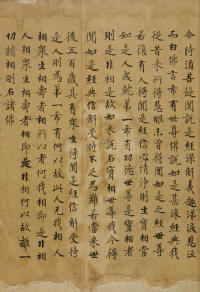 尒時須菩提聞說是經深解義趣涕淚悲泣
而白佛言希有世尊佛說如是甚深經典我
從昔來所得慧眼未曾得聞如是之經世尊
若復有人得聞是經信心清淨則生實相當
知是人成就第一希有功德世尊是實相者
則是非相是故如來說名實相世尊我今得
聞如是經典信解受持不足為難若當來世
後五百歲其有眾生得聞是經信解受持
是人則為第一希有何以故此人无我相人
相眾生相壽者相所以者何我相即是非相
人相眾生相壽者相即是非相何以故離一
切諸相則名諸佛